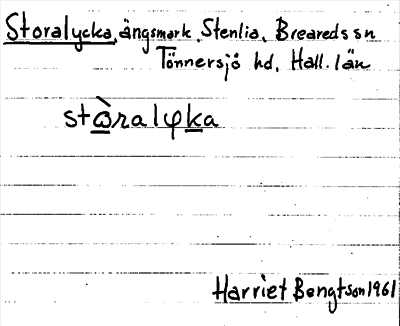 Storalycka, ängsmark, Stenlia, Breareds sn
Tönnersjö hd, Hall. län
stὼralφka
Harriet Bengtson 1961